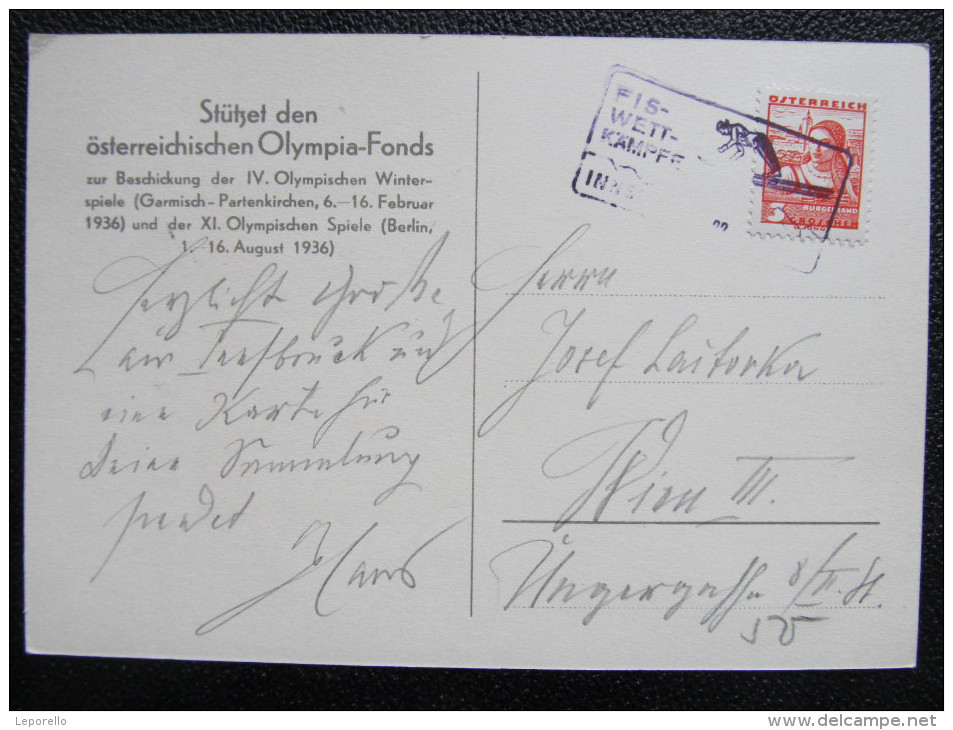 Stützet den
österreichischen Olympia-Fonds
zur Beschickung der IV. Olympischen Winter-
spiele (Garmisch-Partenkirchen, 6.—16. Februar
1936) und der XI. Olympischen Spiele (Berlin,
1.—16. August 1936)
Herzlichste Grüße
aus Innsbruck und
eine Karte für
Deine Sammlung
sendet
Hans
FIS-
WETT-
KÄMPFE
ÖSTERREICH
BURGENLAND
3 GROSCHEN
Herrn
Josef
Wien III.
Ungargasse 8/II. St.
Leporello
www.delcampe.net